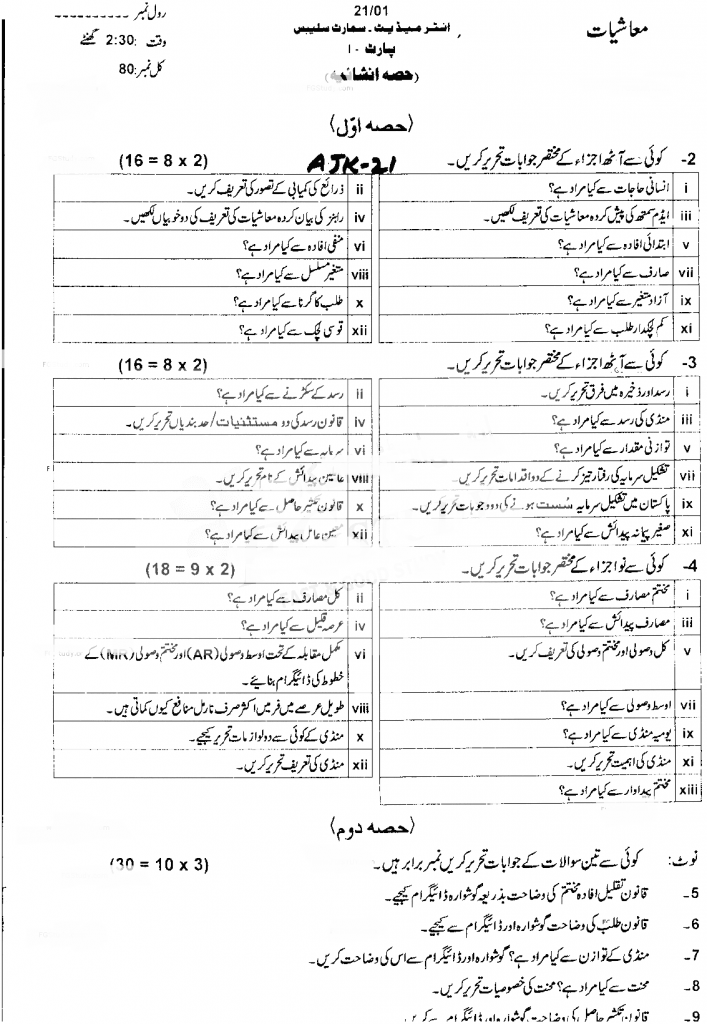 معاشیات
21/01
انٹر میڈیٹ۔ سمارٹ سلیبس
پارٹ - I
(حصہ انشائیہ)
رول نمبر ----------
وقت :2:30 گھنٹے
کل نمبر:80
(حصہ اوّل)
2- کوئی سے آٹھ اجزاء کے مختصر جوابات تحریر کریں۔ AJK-21 (16 = 8 x 2)
i انسانی حاجات سے کیا مراد ہے؟ ii ذرائع کی کمیابی کے تصور کی تعریف کریں۔
iii ایڈم سمتھ کی پیش کردہ معاشیات کی تعریف لکھیں۔ iv رابنز کی بیان کردہ معاشیات کی تعریف کی دو خوبیاں لکھیں۔
v ابتدائی افادہ سے کیا مراد ہے؟ vi منفی افادہ سے کیا مراد ہے؟
vii صارف سے کیا مراد ہے؟ viii متغیر مسلسل سے کیا مراد ہے؟
ix آزاد متغیر سے کیا مراد ہے؟ x طلب کا گرنا سے کیا مراد ہے؟
xi کم لچکدار طلب سے کیا مراد ہے؟ xii قوسی لچک سے کیا مراد ہے؟
3- کوئی سے آٹھ اجزاء کے مختصر جوابات تحریر کریں۔ (16 = 8 x 2)
i رسد اور ذخیرہ میں فرق تحریر کریں۔ ii رسد کے سکڑنے سے کیا مراد ہے؟
iii منڈی کی رسد سے کیا مراد ہے؟ iv قانون رسد کی دو مستثنیات/حد بندیاں تحریر کریں۔
v توازنی مقدار سے کیا مراد ہے؟ vi سرمایہ سے کیا مراد ہے؟
vii تشکیل سرمایہ کی رفتار تیز کرنے کے دو اقدامات تحریر کریں۔ viii عاملین پیدائش کے نام تحریر کریں۔
ix پاکستان میں تشکیل سرمایہ سُست ہونے کی دو وجوہات تحریر کریں۔ x قانون تکثیر حاصل سے کیا مراد ہے؟
xi صغیر پیمانہ پیدائش سے کیا مراد ہے؟ xii معین عامل پیدائش سے کیا مراد ہے؟
4- کوئی سے نو اجزاء کے مختصر جوابات تحریر کریں۔ (18 = 9 x 2)
i مختتم مصارف سے کیا مراد ہے؟ ii کل مصارف سے کیا مراد ہے؟
iii مصارف پیدائش سے کیا مراد ہے؟ iv عرصہ قلیل سے کیا مراد ہے؟
v کل وصولی اور مختتم وصولی کی تعریف کریں۔ vi مکمل مقابلہ کے تحت اوسط وصولی (AR) اور مختتم وصولی (MR) کے
خطوط کی ڈائیگرام بنائیے۔
vii اوسط وصولی سے کیا مراد ہے؟ viii طویل عرصے میں فرمیں اکثر صرف نارمل منافع کیوں کماتی ہیں۔
ix یومیہ منڈی سے کیا مراد ہے؟ x منڈی کے کوئی سے دو لوازمات تحریر کیجیے۔
xi منڈی کی اہمیت تحریر کریں۔ xii منڈی کی تعریف تحریر کریں۔
xiii مختتم پیداوار سے کیا مراد ہے؟
(حصہ دوم)
نوٹ: کوئی سے تین سوالات کے جوابات تحریر کریں نمبر برابر ہیں۔ (30 = 10 x 3)
5- قانون تقلیل افادہ مختتم کی وضاحت بذریعہ گوشوارہ ڈائیگرام کیجیے۔
6- قانون طلب کی وضاحت گوشوارہ اور ڈائیگرام سے کیجیے۔
7- منڈی کے توازن سے کیا مراد ہے؟ گوشوارہ اور ڈائیگرام سے اس کی وضاحت کریں۔
8- محنت سے کیا مراد ہے؟ محنت کی خصوصیات تحریر کریں۔
9- قانون تکثیر حاصل کی وضاحت گوشوارہ اور ڈائیگرام سے کریں۔